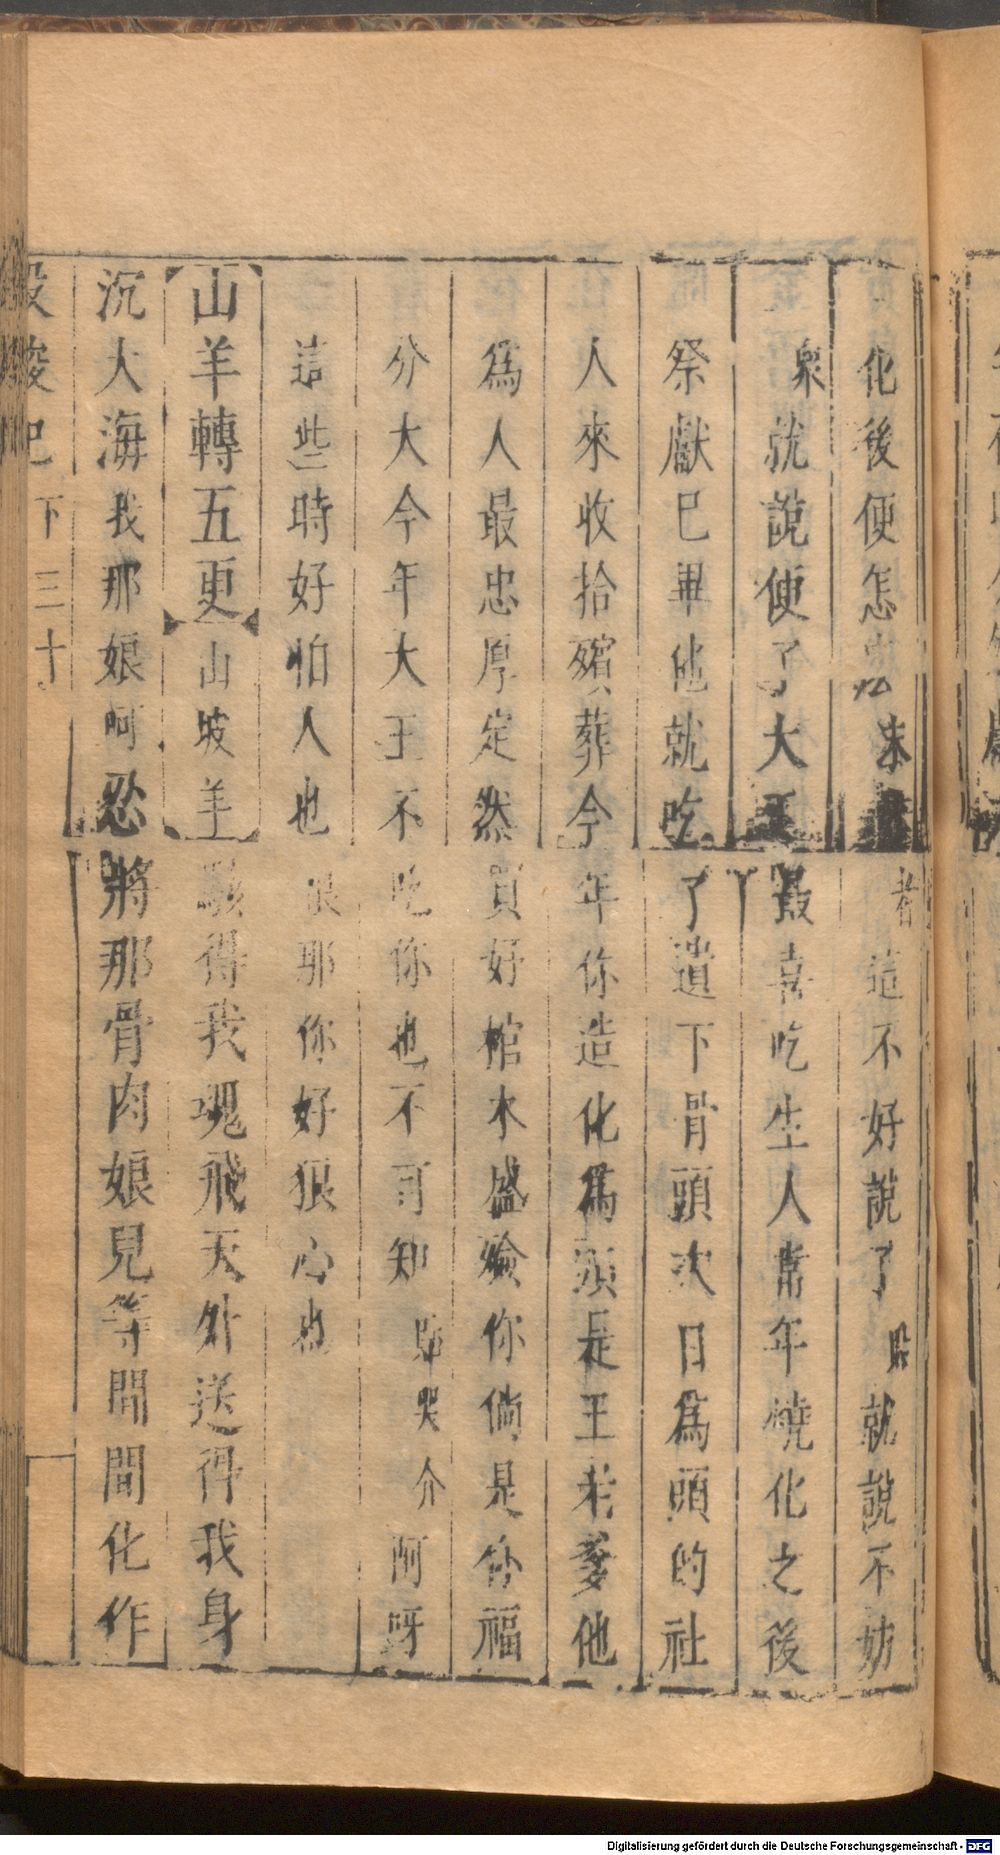 化後便怎 末 者這不好說了 股 就說不妨
衆就說便了大王最喜吃生人常年燒化之後
祭獻已畢他就吃了遺下骨頭次日爲頭的社
人來收拾殯葬今年你造化爲頭是王老爹他
爲人最忠厚定然買好棺木盛殮你倘是你福
分大今年大王不吃你也不可知 哭介 阿呀
這些時好怕人也 狠那你好狠心也
山羊轉五更 山坡羊 得我魂飛天外送得我身
沉大海我那娘呵忍將那骨肉娘兒等閒間化作
下 三十
Digitalisierung gefördert durch die Deutsche Forschungsgemeinschaft - DFG